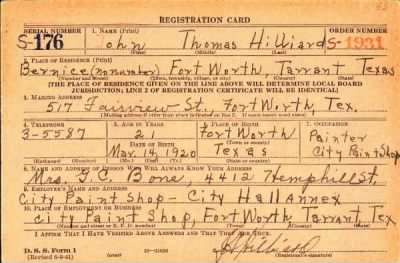 REGISTRATION CARD
SERIAL NUMBER 1. NAME (Print) ORDER NUMBER
S-176 John Thomas Hilliard S-1931
(First) (Middle) (Last)
2. PLACE OF RESIDENCE (Print)
Bernice (no number) Fort Worth, Tarrant Texas
(Number and street) (Town, township, village, or city) (County) (State)
[THE PLACE OF RESIDENCE GIVEN ON THE LINE ABOVE WILL DETERMINE LOCAL BOARD
JURISDICTION; LINE 2 OF REGISTRATION CERTIFICATE WILL BE IDENTICAL]
3. MAILING ADDRESS
517 Fairview St., Fort Worth, Tex.
[Mailing address if other than place indicated on line 2. If same insert word same]
4. TELEPHONE 5. AGE IN YEARS 6. PLACE OF BIRTH 7. OCCUPATION
3-5587 21 Fort Worth Painter
DATE OF BIRTH (Town or county)
Mar. 14, 1920 Texas City Paint Shop
(Exchange) (Number) (Mo.) (Day) (Yr.) (State or country)
8. NAME AND ADDRESS OF PERSON WHO WILL ALWAYS KNOW YOUR ADDRESS
Mrs. T. C. Bone, 4412 Hemphill St.
9. EMPLOYER'S NAME AND ADDRESS
City Paint Shop - City Hall Annex
10. PLACE OF EMPLOYMENT OR BUSINESS
City Paint Shop, Fort Worth, Tarrant, Tex
(Number and street or R. F. D. number) (Town) (County) (State)
I AFFIRM THAT I HAVE VERIFIED ABOVE ANSWERS AND THAT THEY ARE TRUE.
D. S. S. Form 1
(Revised 6-9-41) (Registrant's signature)